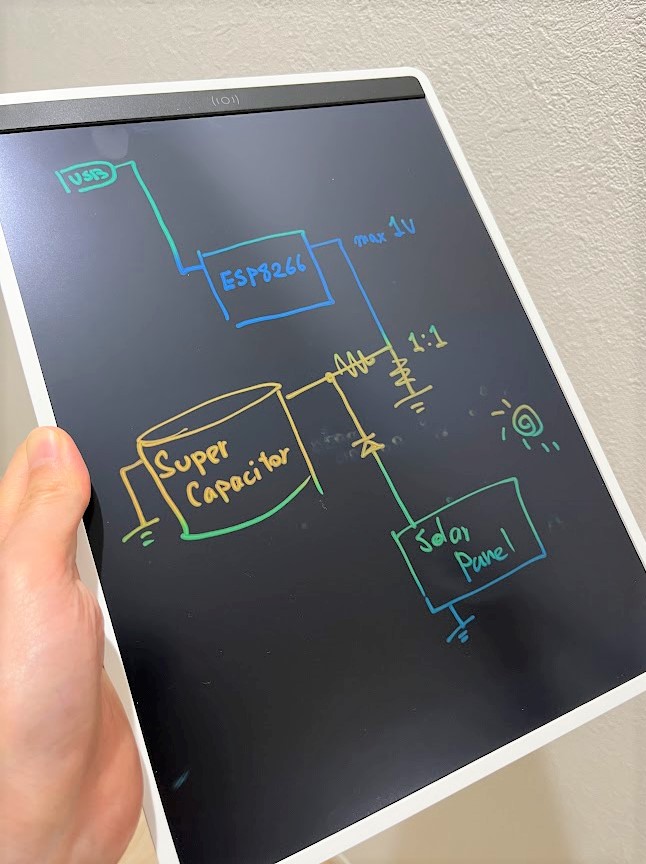 USB
ESP8266
max 1V
1:1
Super
Capacitor
Solar
Panel